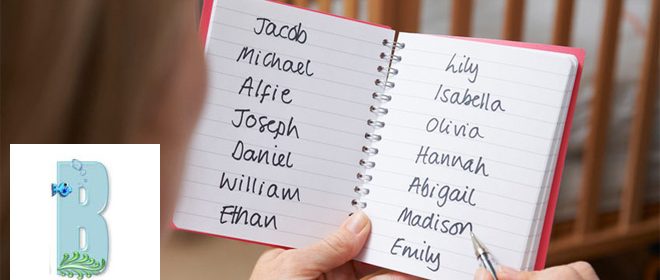 Jacob
Michael
Alfie
Joseph
Daniel
William
Ethan
Lily
Isabella
Olivia
Hannah
Abigail
Madison
Emily
B